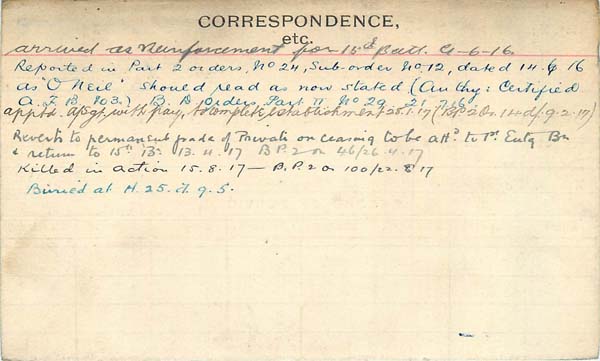 CORRESPONDENCE,
etc.
arrived as Reinforcement for 15th Batt. 9-6-16
Reported in Part 2 orders, No 24, Sub-order No 12, dated 14.6.16
as "O'Neil" should read as now stated (Authy: Certified
A.F.B. 103.) B.D. Orders, Part II No 29 21.7.16
apptd. a/Sgt, with pay, to complete establishment 25.1.17 (B.P.2 O. 14 d/9.2.17)
Reverts to permanent grade of Private on ceasing to be attd to 1st Entg Bn
& return to 15th Bn. 13.4.17 B.P.2 O 46/26.4.17
Killed in action 15.8.17 — B.P.2 O 100/22.8.17
Buried at H.25.d.9.5.